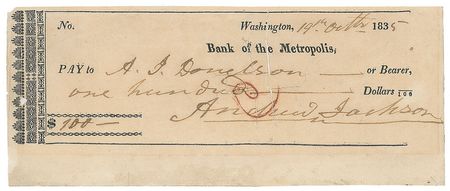 No. Washington, 19th Octbr 1835
Bank of the Metropolis,
PAY to A. J. Donelson — or Bearer,
one hundred — Dollars 100
$ 100 — Andrew Jackson